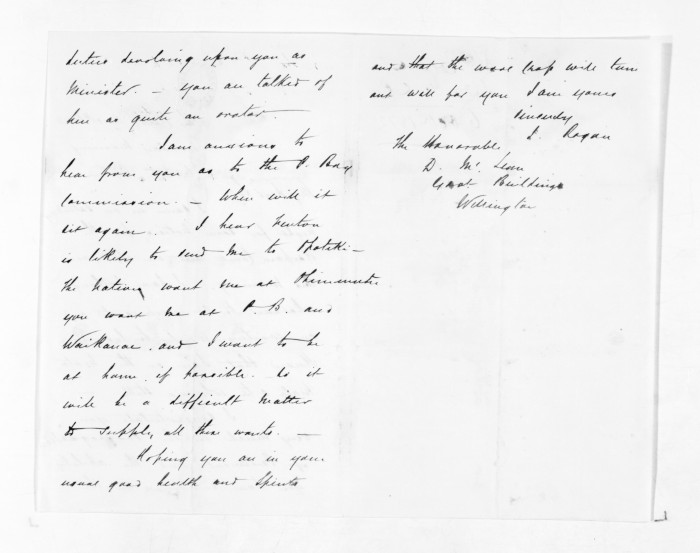 duties devolving upon you as
Minister. – you are talked of
here as quite an orator. –
I am anxious to
hear from you as to the P. Bay
Commission. – When will it
sit again. I hear Fenton
is likely to send me to Opotiki –
the natives want me at Ohinemutu
you want me at P. B. and
Waikanae. and I want to be
at home if possible. So it
will be a difficult matter
to supply all these wants. –
Hoping you are in your
usual good health and spirits
and that the wool crop will turn
out well for you I am yours
sincerely
J. Rogan
The Honorable
D. Mc Lean
Govt Buildings
Wellington